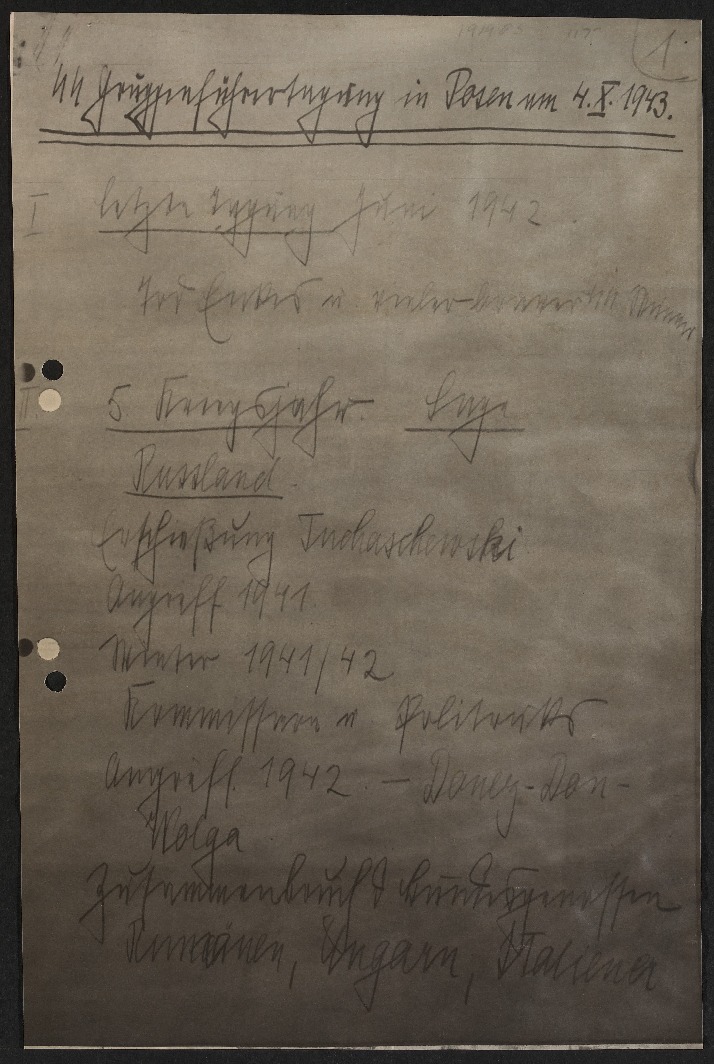 1.
SS Gruppenführertagung in Posen am 4.X.1943.
I letzte Tagung Juni 1942.
Tod Eickes u vieler braver Männer
II 5 Kriegsjahr. Lage
Russland.
Erschießung Tuchaschewski
Angriff 1941.
Winter 1941/42
Kommissare u Politruks
Angriff 1942. – Donez-Don-
Wolga
Zusammenbruch d Bundesgenossen
Rumänen, Ungarn, Italiener